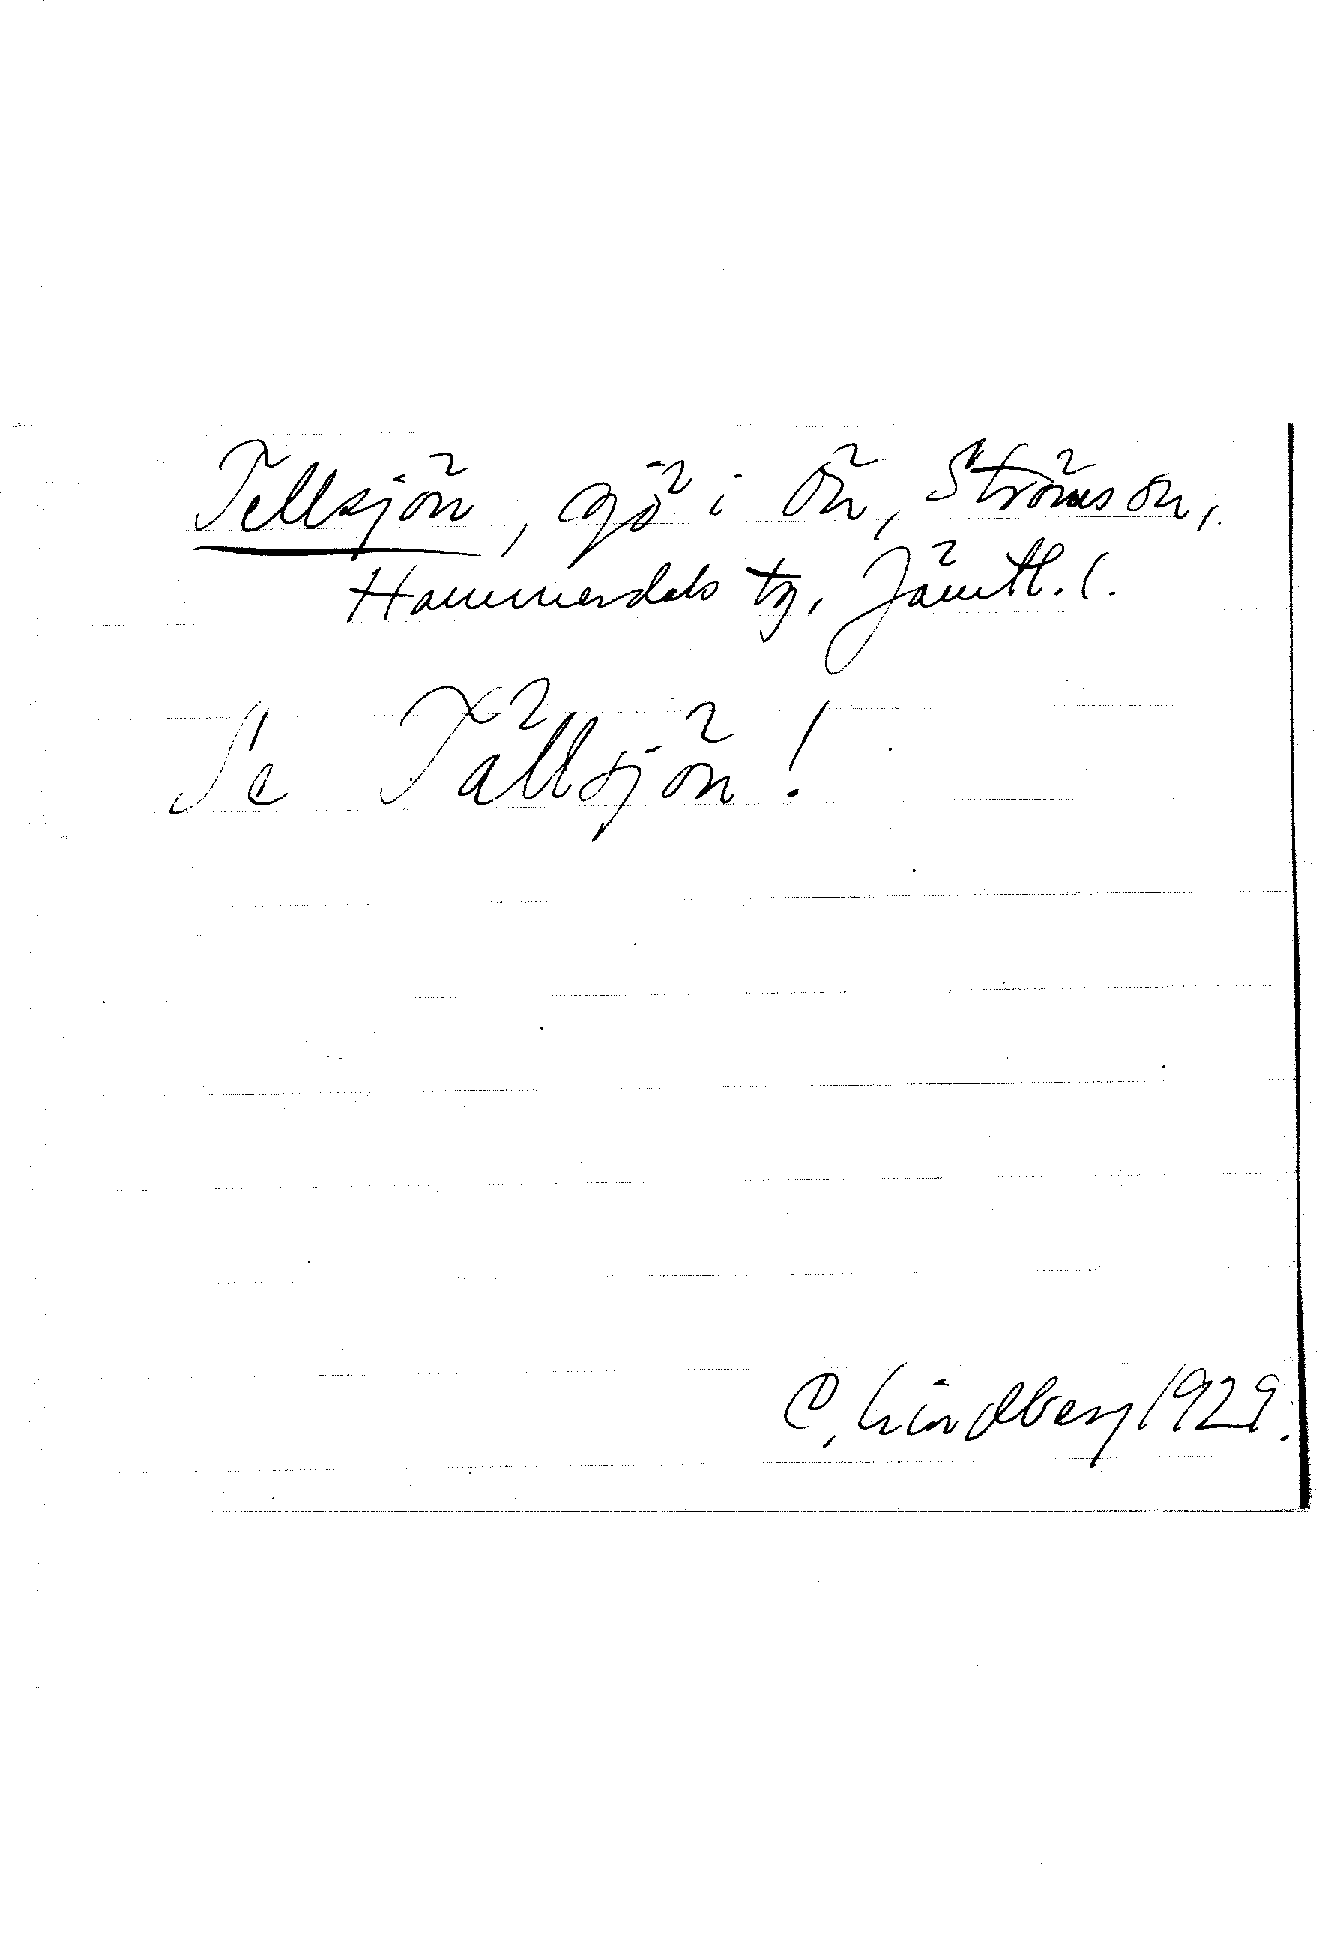 Tellsjön, gd i Ön, Ströms sn,
Hammerdals tg, Jämtl. l.
Se Tällsjön!
C. Lindberg 1929.